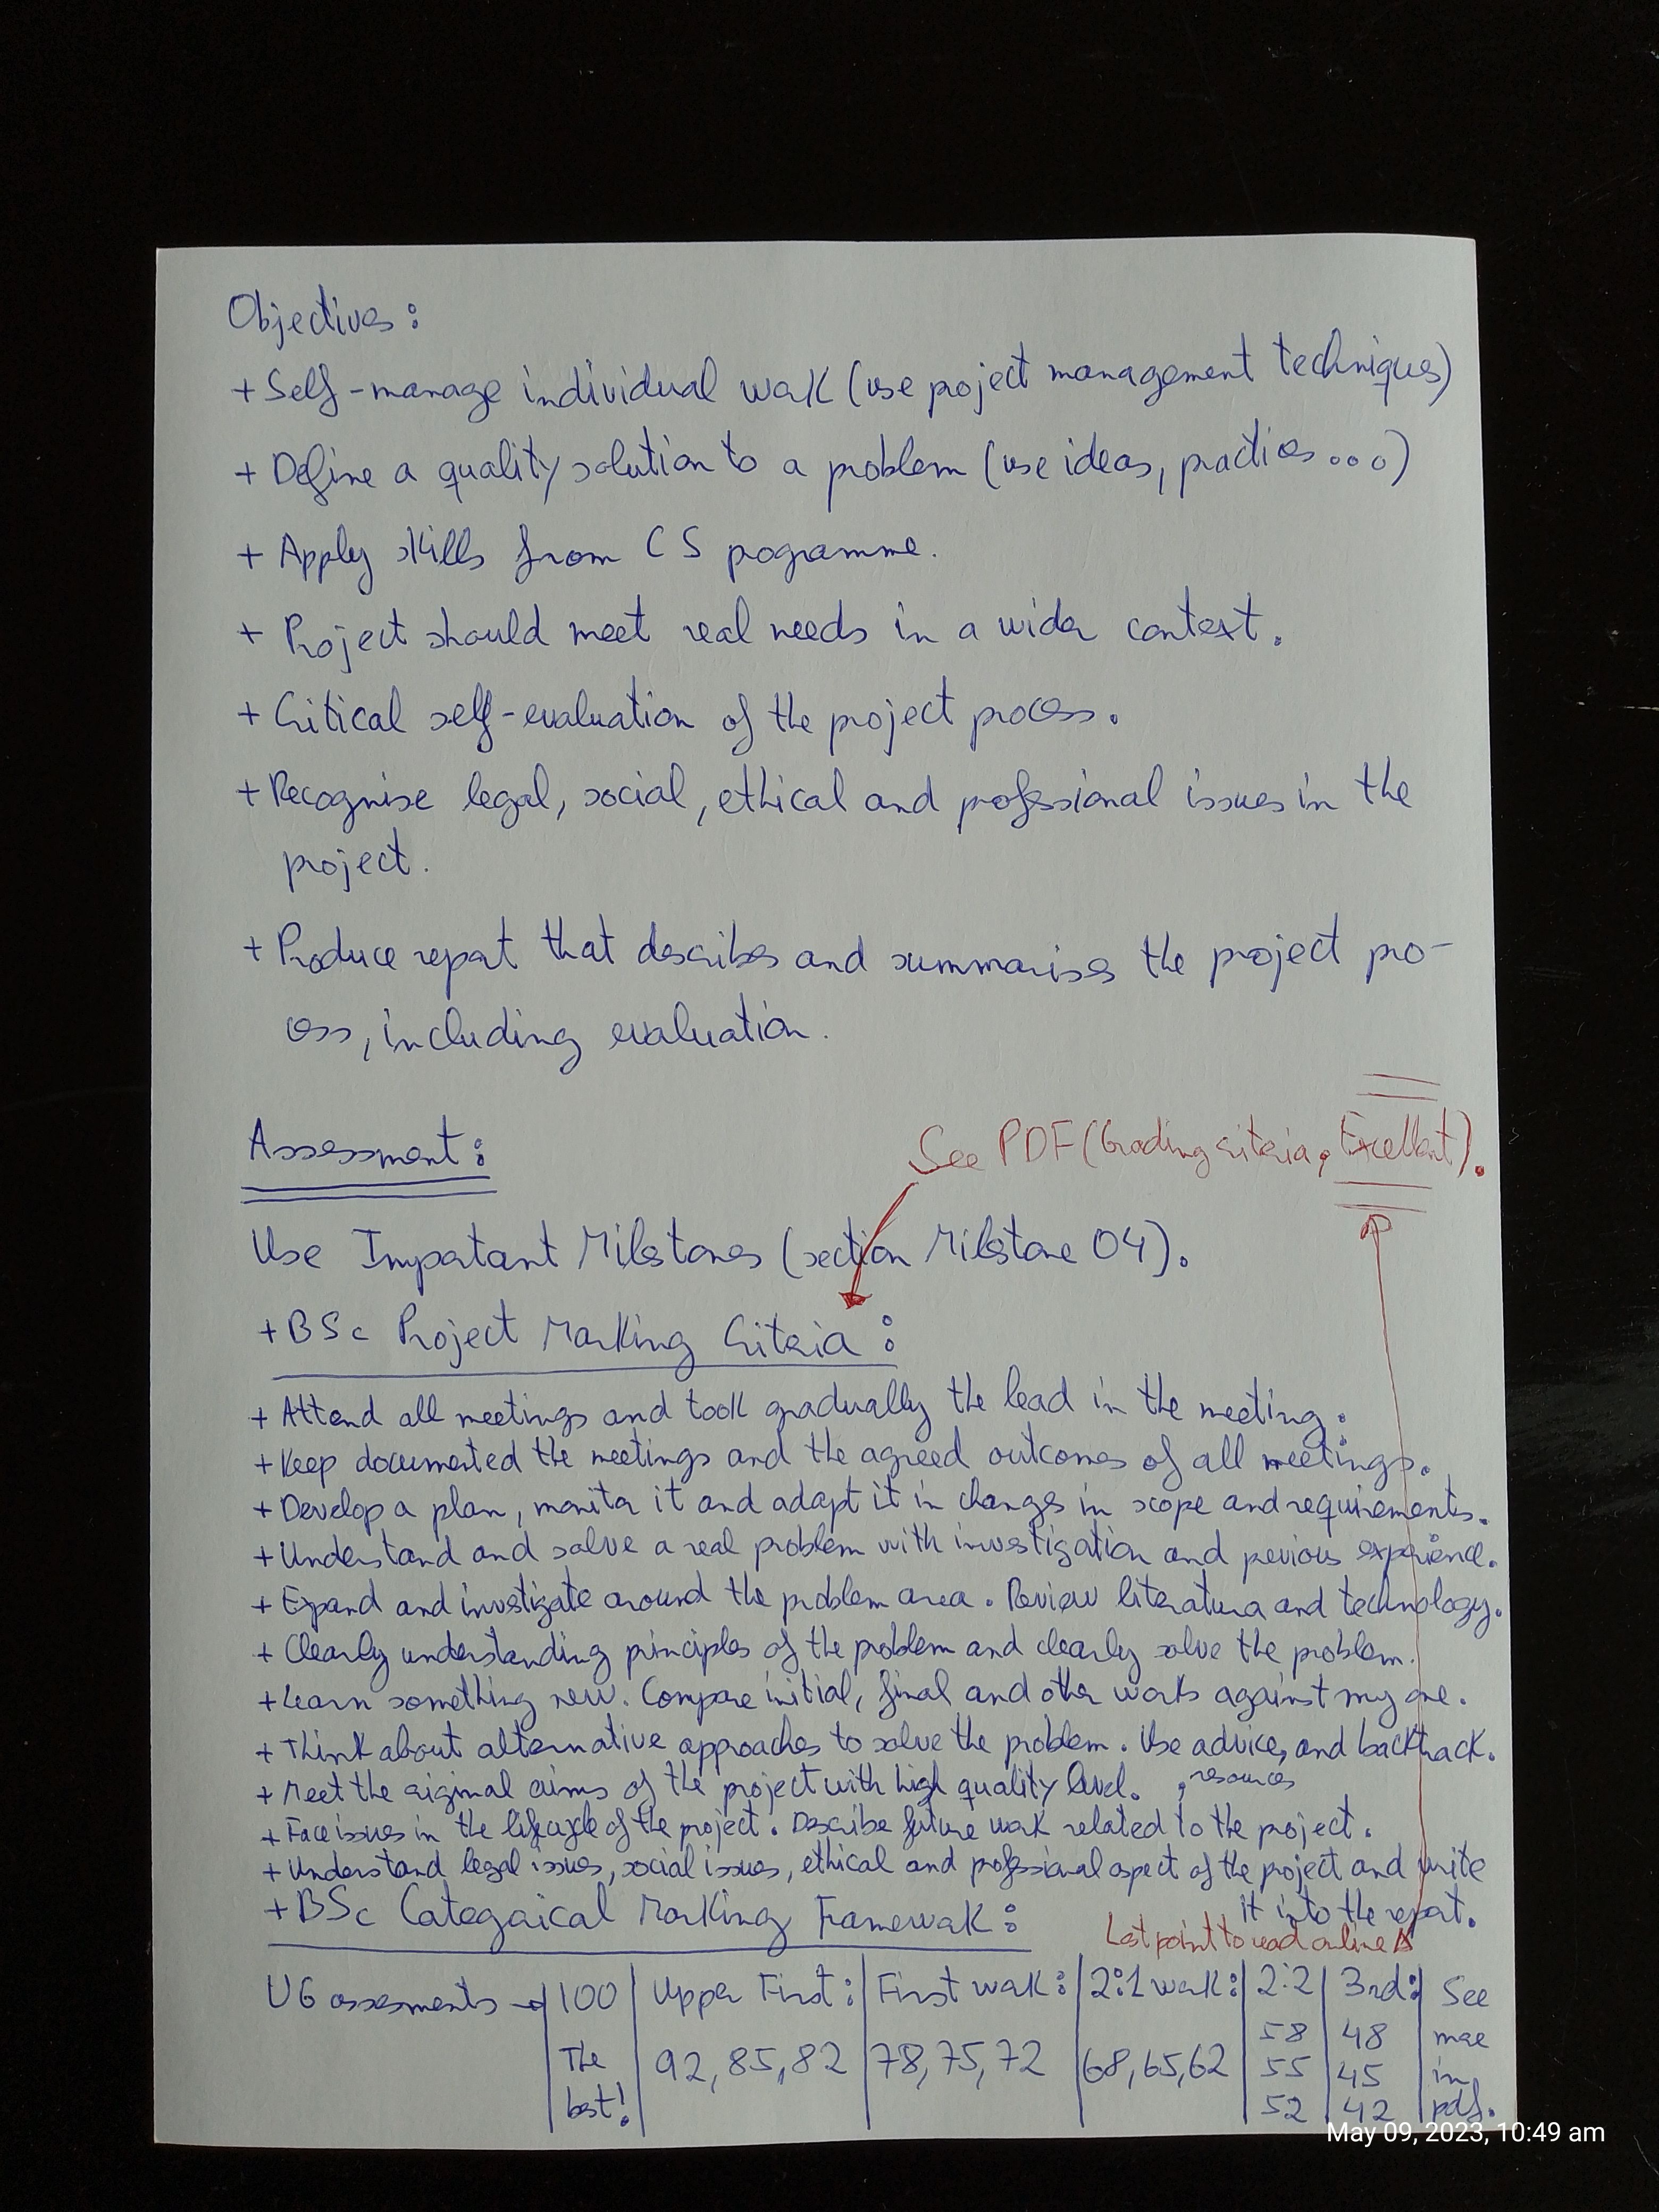 Objectives:
+ Self-manage individual work (use project management techniques)
+ Define a quality solution to a problem (use ideas, practices...)
+ Apply skills from CS programme.
+ Project should meet real needs in a wider context.
+ Critical self-evaluation of the project process.
+ Recognise legal, social, ethical and professional issues in the
project.
+ Produce report that describes and summarises the project pro-
cess, including evaluation.
Assessment:
See PDF (Grading criteria, Excellent).
Use Important Milestones (section Milestone 04).
+ BSc Project Marking Criteria:
+ Attend all meetings and took gradually the lead in the meeting.
+ Keep documented the meetings and the agreed outcomes of all meetings.
+ Develop a plan, monitor it and adapt it in changes in scope and requirements.
+ Understand and solve a real problem with investigation and previous experience.
+ Expand and investigate around the problem area. Review literature and technology.
+ Clearly understanding principles of the problem and clearly solve the problem.
+ Learn something new. Compare initial, final and other works against my one.
+ Think about alternative approaches to solve the problem. Use advice, and backtrack.
, resources
+ Meet the original aims of the project with high quality level.
+ Face issues in the lifecycle of the project. Describe future work related to the project.
+ Understand legal issues, social issues, ethical and professional aspect of the project and write
it into the report.
+ BSc Categorical Marking Framework:
Last point to read online
UG assesments → 100 | Upper First: | First work: | 2:1 work: | 2:2 | 3rd: | See
58 | 48 | more
The | 92, 85, 82 | 78, 75, 72 | 68, 65, 62 | 55 | 45 | in
best! | 52 | 42 | pdf.
May 09, 2023, 10:49 am